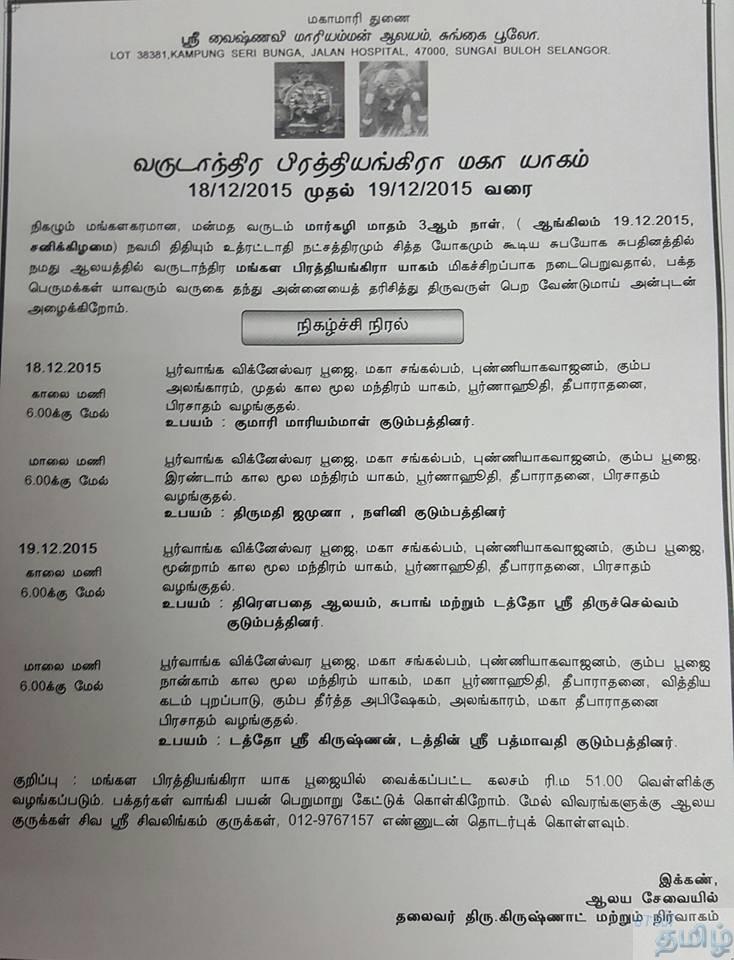 மகாமாரி துணை
ஸ்ரீ வைஷ்ணவி மாரியம்மன் ஆலயம், சுங்கை பூலோ.
LOT 38381,KAMPUNG SERI BUNGA, JALAN HOSPITAL, 47000, SUNGAI BULOH SELANGOR.
வருடாந்திர பிரத்தியங்கிரா மகா யாகம்
18/12/2015 முதல் 19/12/2015 வரை
நிகழும் மங்களகரமான, மன்மத வருடம் மார்கழி மாதம் 3ஆம் நாள், ( ஆங்கிலம் 19.12.2015,
சனிக்கிழமை) நவமி திதியும் உத்ரட்டாதி நட்சத்திரமும் சித்த யோகமும் கூடிய சுபயோக சுபதினத்தில்
நமது ஆலயத்தில் வருடாந்திர மங்கள பிரத்தியங்கிரா யாகம் மிகச்சிறப்பாக நடைபெறுவதால், பக்த
பெருமக்கள் யாவரும் வருகை தந்து அன்னையைத் தரிசித்து திருவருள் பெற வேண்டுமாய் அன்புடன்
அழைக்கிறோம்.
நிகழ்ச்சி நிரல்
18.12.2015 பூர்வாங்க விக்னேஸ்வர பூஜை, மகா சங்கல்பம், புண்ணியாகவாஜனம், கும்ப
காலை மணி அலங்காரம், முதல் கால மூல மந்திரம் யாகம், பூர்ணாஹூதி, தீபாராதனை,
6.00க்கு மேல் பிரசாதம் வழங்குதல்.
உபயம் : குமாரி மாரியம்மாள் குடும்பத்தினர்.
மாலை மணி பூர்வாங்க விக்னேஸ்வர பூஜை, மகா சங்கல்பம், புண்ணியாகவாஜனம், கும்ப பூஜை,
6.00க்கு மேல் இரண்டாம் கால மூல மந்திரம் யாகம், பூர்ணாஹூதி, தீபாராதனை, பிரசாதம்
வழங்குதல்.
உபயம் : திருமதி ஜமுனா , நளினி குடும்பத்தினர்
19.12.2015 பூர்வாங்க விக்னேஸ்வர பூஜை, மகா சங்கல்பம், புண்ணியாகவாஜனம், கும்ப பூஜை,
காலை மணி மூன்றாம் கால மூல மந்திரம் யாகம், பூர்ணாஹூதி, தீபாராதனை, பிரசாதம்
6.00க்கு மேல் வழங்குதல்.
உபயம் : திரௌபதை ஆலயம், சுபாங் மற்றும் டத்தோ ஸ்ரீ திருச்செல்வம்
குடும்பத்தினர்.
மாலை மணி பூர்வாங்க விக்னேஸ்வர பூஜை, மகா சங்கல்பம், புண்ணியாகவாஜனம், கும்ப பூஜை
6.00க்கு மேல் நான்காம் கால மூல மந்திரம் யாகம், மகா பூர்ணாஹூதி, தீபாராதனை, வித்திய
கடம் புறப்பாடு, கும்ப தீர்த்த அபிஷேகம், அலங்காரம், மகா தீபாராதனை
பிரசாதம் வழங்குதல்.
உபயம் : டத்தோ ஸ்ரீ கிருஷ்ணன், டத்தின் ஸ்ரீ பத்மாவதி குடும்பத்தினர்.
குறிப்பு : மங்கள பிரத்தியங்கிரா யாக பூஜையில் வைக்கப்பட்ட கலசம் ரி.ம 51.00 வெள்ளிக்கு
வழங்கப்படும். பக்தர்கள் வாங்கி பயன் பெறுமாறு கேட்டுக் கொள்கிறோம். மேல் விவரங்களுக்கு ஆலய
குருக்கள் சிவ ஸ்ரீ சிவலிங்கம் குருக்கள், 012-9767157 எண்ணுடன் தொடர்புக் கொள்ளவும்.
இக்கண்,
ஆலய சேவையில்
தலைவர் திரு.கிருஷ்ணாட் மற்றும் நிர்வாகம்
தமிழ்